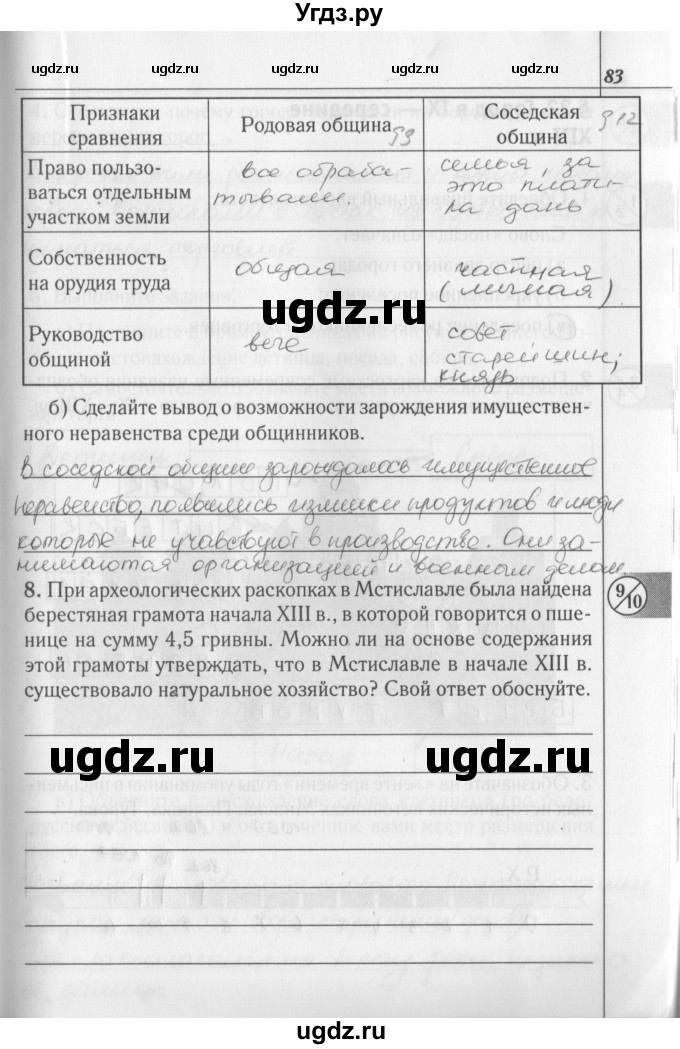 Угдз.ру
ugdz.ru ugdz.ru ugdz.ru ugdz.ru ugdz.ru
83
Признаки сравнения
Родовая община §9
Соседская община §12
Право пользо-
ваться отдельным
участком земли
все обраба-
тывали.
семья, за
это плати-
ла дань
Собственность
на орудия труда
общая
частная
(личная).
ugdz.ru ugdz.ru
Руководство
общиной
вече
совет
старейшин;
князь
ugdz.ru ugdz.ru ugdz.ru ugdz.ru ugdz.ru
б) Сделайте вывод о возможности зарождения имуществен-
ного неравенства среди общинников.
В соседской общине зарождалось имущественное
неравенство, появились излишки продуктов и люди
которые не учавствуют в производстве. Они за-
нимаются организацией и военным делом
8. При археологических раскопках в Мстиславле была найдена
берестяная грамота начала XIII в., в которой говорится о пше-
нице на сумму 4,5 гривны. Можно ли на основе содержания
этой грамоты утверждать, что в Мстиславле в начале XIII в.
существовало натуральное хозяйство? Свой ответ обоснуйте.
9/10
ugdz.ru ugdz.ru
ugdz.ru ugdz.ru ugdz.ru ugdz.ru ugdz.ru
ugdz.ru